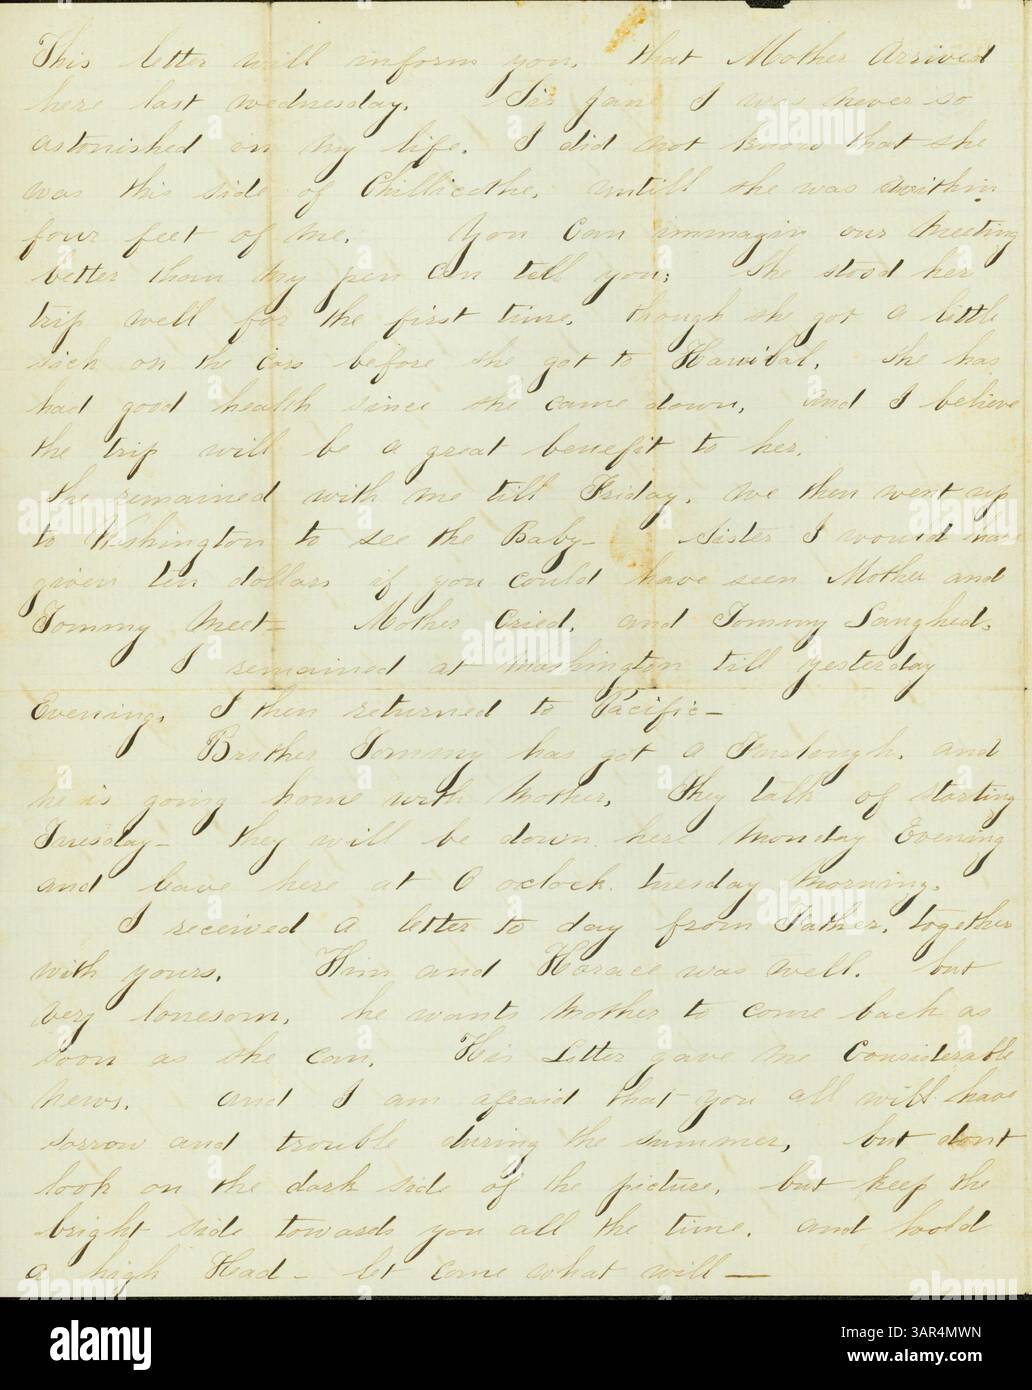 This letter will inform you, that Mother Arrived
here last wednesday. Sis Jane I was never so
astonished in my life. I did not know that she
was this side of Chillicothe, untill she was within
four feet of me. You Can immagin our Meeting
better than My pen Can tell you; She stood her
trip well for the first time, though she got a little
sick on the Cars before she got to Hanibal, She has
had good health since she came down, and I believe
the trip will be a great benefit to her.
She remained with me till Friday, we then went up
to Washington to see the Baby— Sister I would have
given ten dollars if you could have seen Mother and
Tommy Meet— Mother Cried, and Tommy Laughed.
I remained at Washington till yesterday
Evening, I then returned to Pacific—
Brother Tommy has got a Furlough, and
he is going home with Mother, They talk of starting
Tuesday— they will be down here Monday Evening
and leave here at 6 oclock tuesday Morning.
I received a letter to day from Father, together
with yours, Him and Horace was well, but
very lonesom, he wants Mother to come back as
soon as she can, His Letter gave me Considerable
News. and I am afraid that you all will have
sorrow and trouble during the summer, but dont
look on the dark side of the picture, but keep the
bright side towards you all the time, and hold
a high Head— let come what will—
alamy
Image ID: 3AR4MWN
www.alamy.com